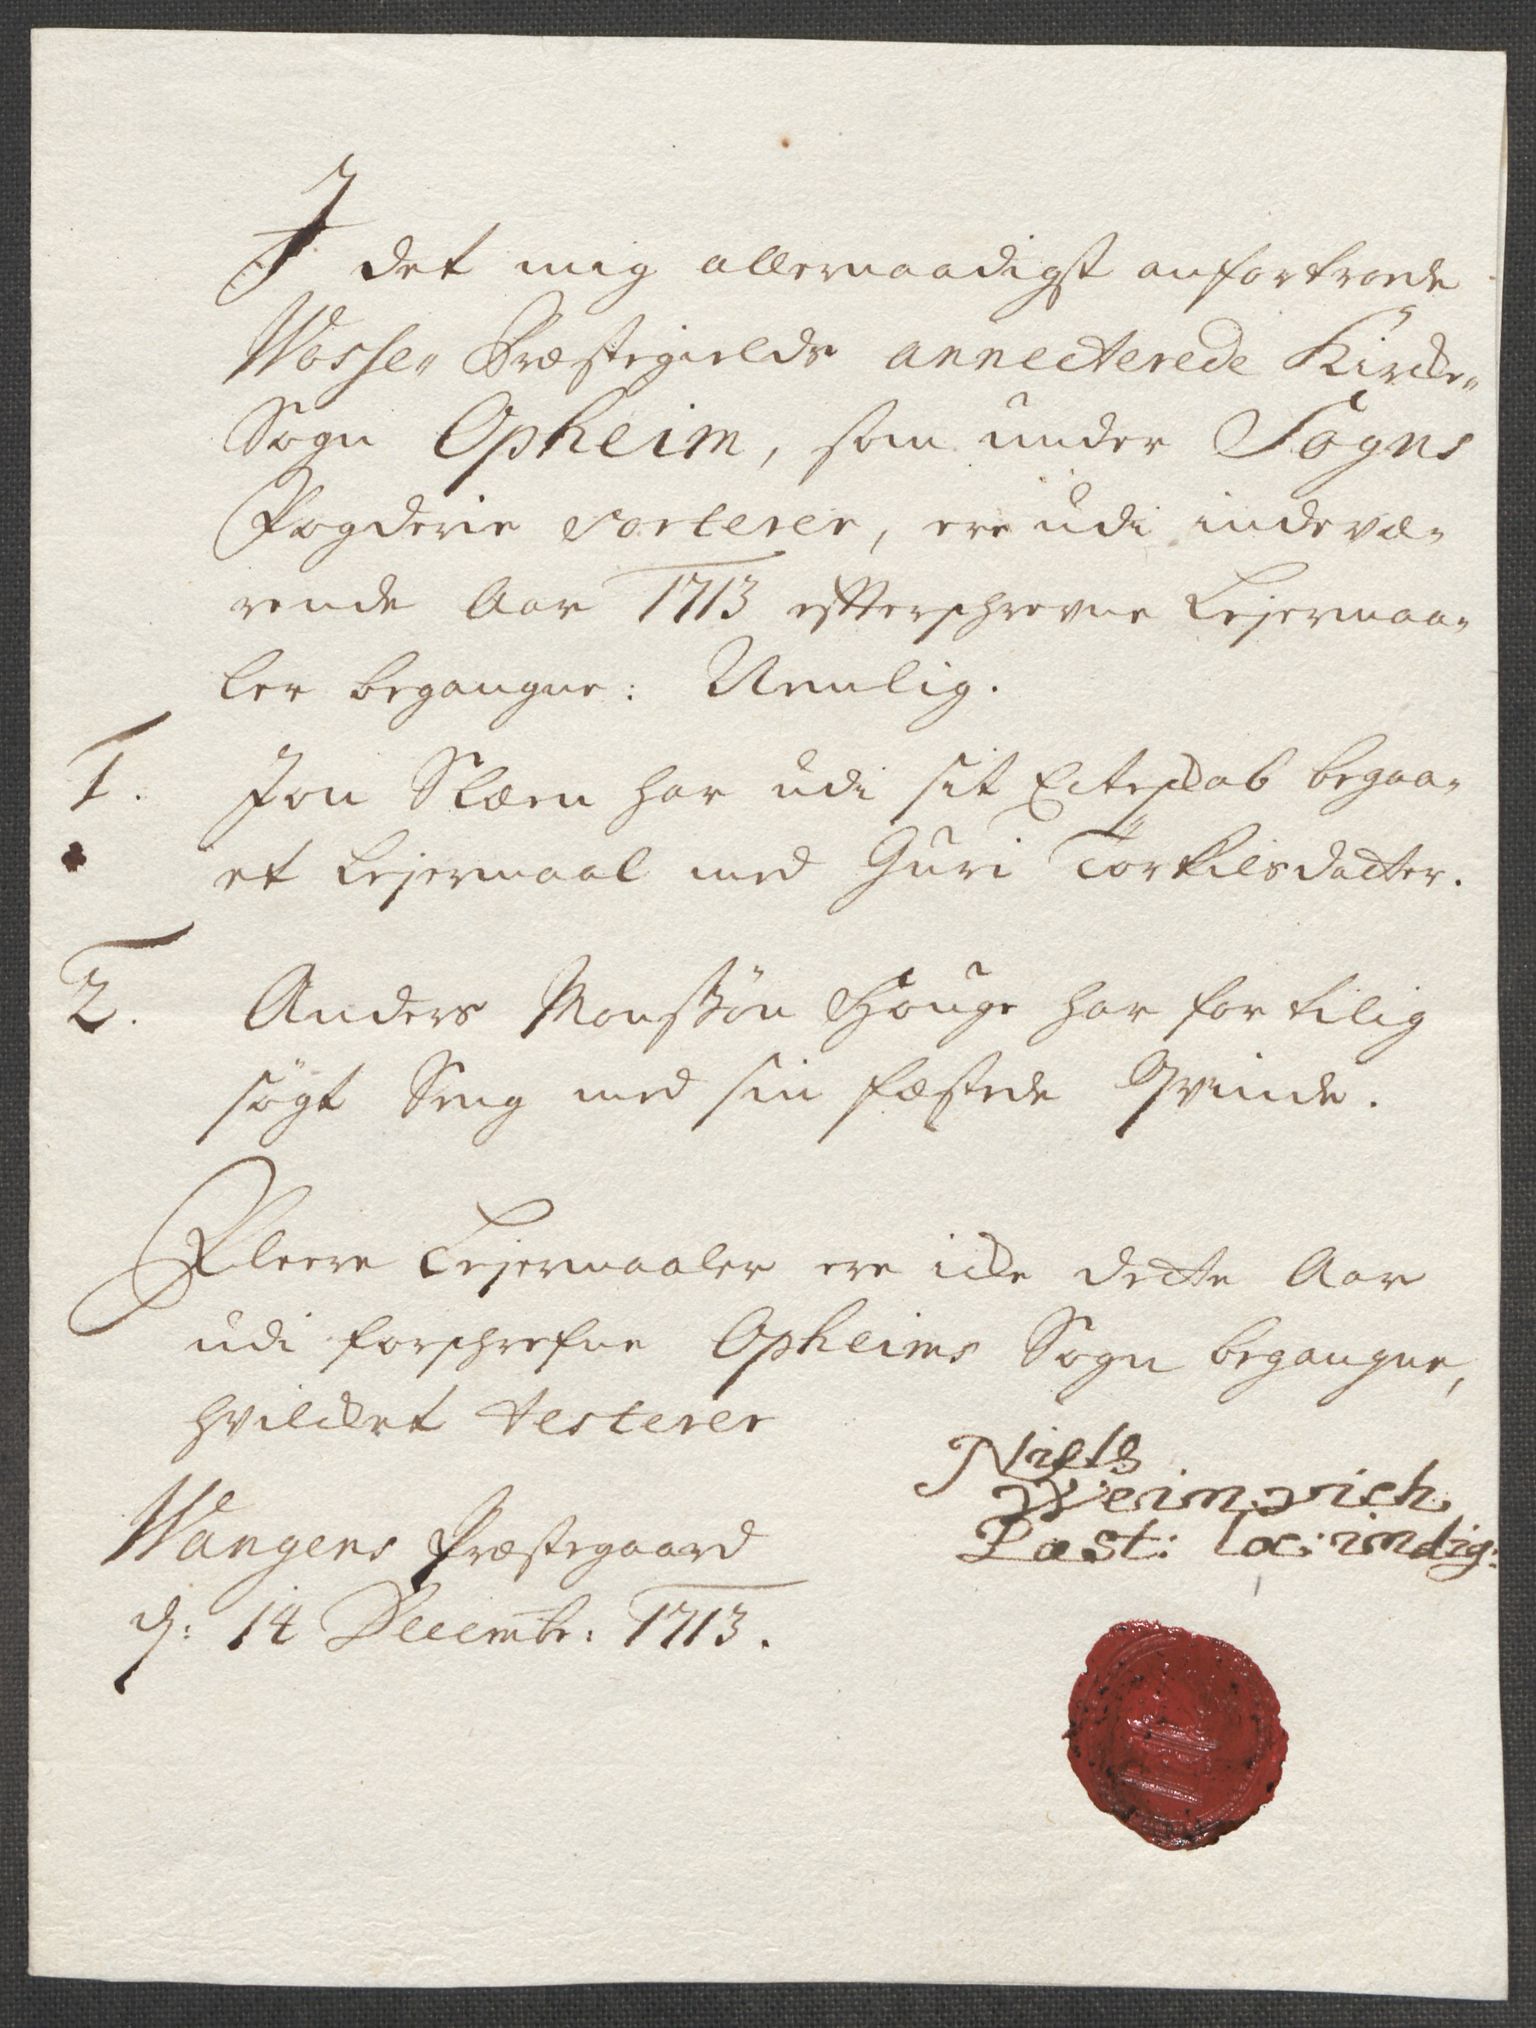 I det mig allernaadigst anfortroede
Wosse„ Præstegields annecterede Kircke„
Sogn Opheim, som under Sogns
Fogderie sorterer, ere udi indevæ„
rende Aar 1713 efftterschrevne Lejermaa„
ler begangne: Nemlig.
1. Jon Slæen har udi sit Ecteskab begaa„
et Lejermaal med Guri Törkilsdatter.
2. Anders Monssön Houge har for tilig
sögt Seng med sin fæstede Qvinde.
Fleere Lejermaaler ere icke dette Aar
udi forschrefne Opheims Sogn begangne,
hvilcket testerer
Niels
Weinwich
Past: loc: indig:
Wangens Præstegaard
d: 14 Decembr: 1713.